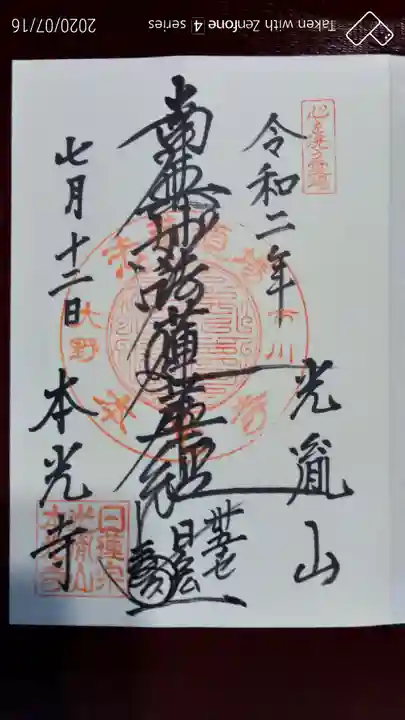 Taken with Zenfone 4 series
2020/07/16
令和二年
光胤山
南無妙法蓮華経
卅五世
七月十二日
本光寺
市川
大野
日蓮宗
光胤山
本光寺